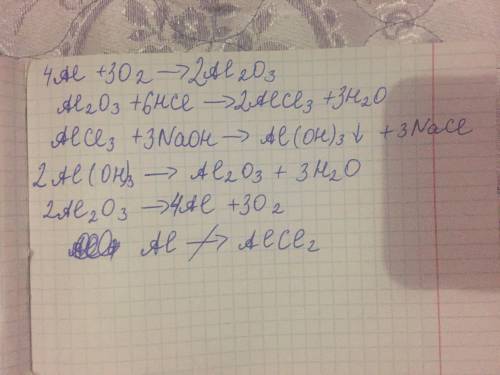 4Al + 3O2 → 2Al2O3
Al2O3 + 6HCl → 2AlCl3 + 3H2O
AlCl3 + 3NaOH → Al(OH)3↓ + 3NaCl
2Al(OH)3 → Al2O3 + 3H2O
2Al2O3 → 4Al + 3O2
Al ↛ AlCl2